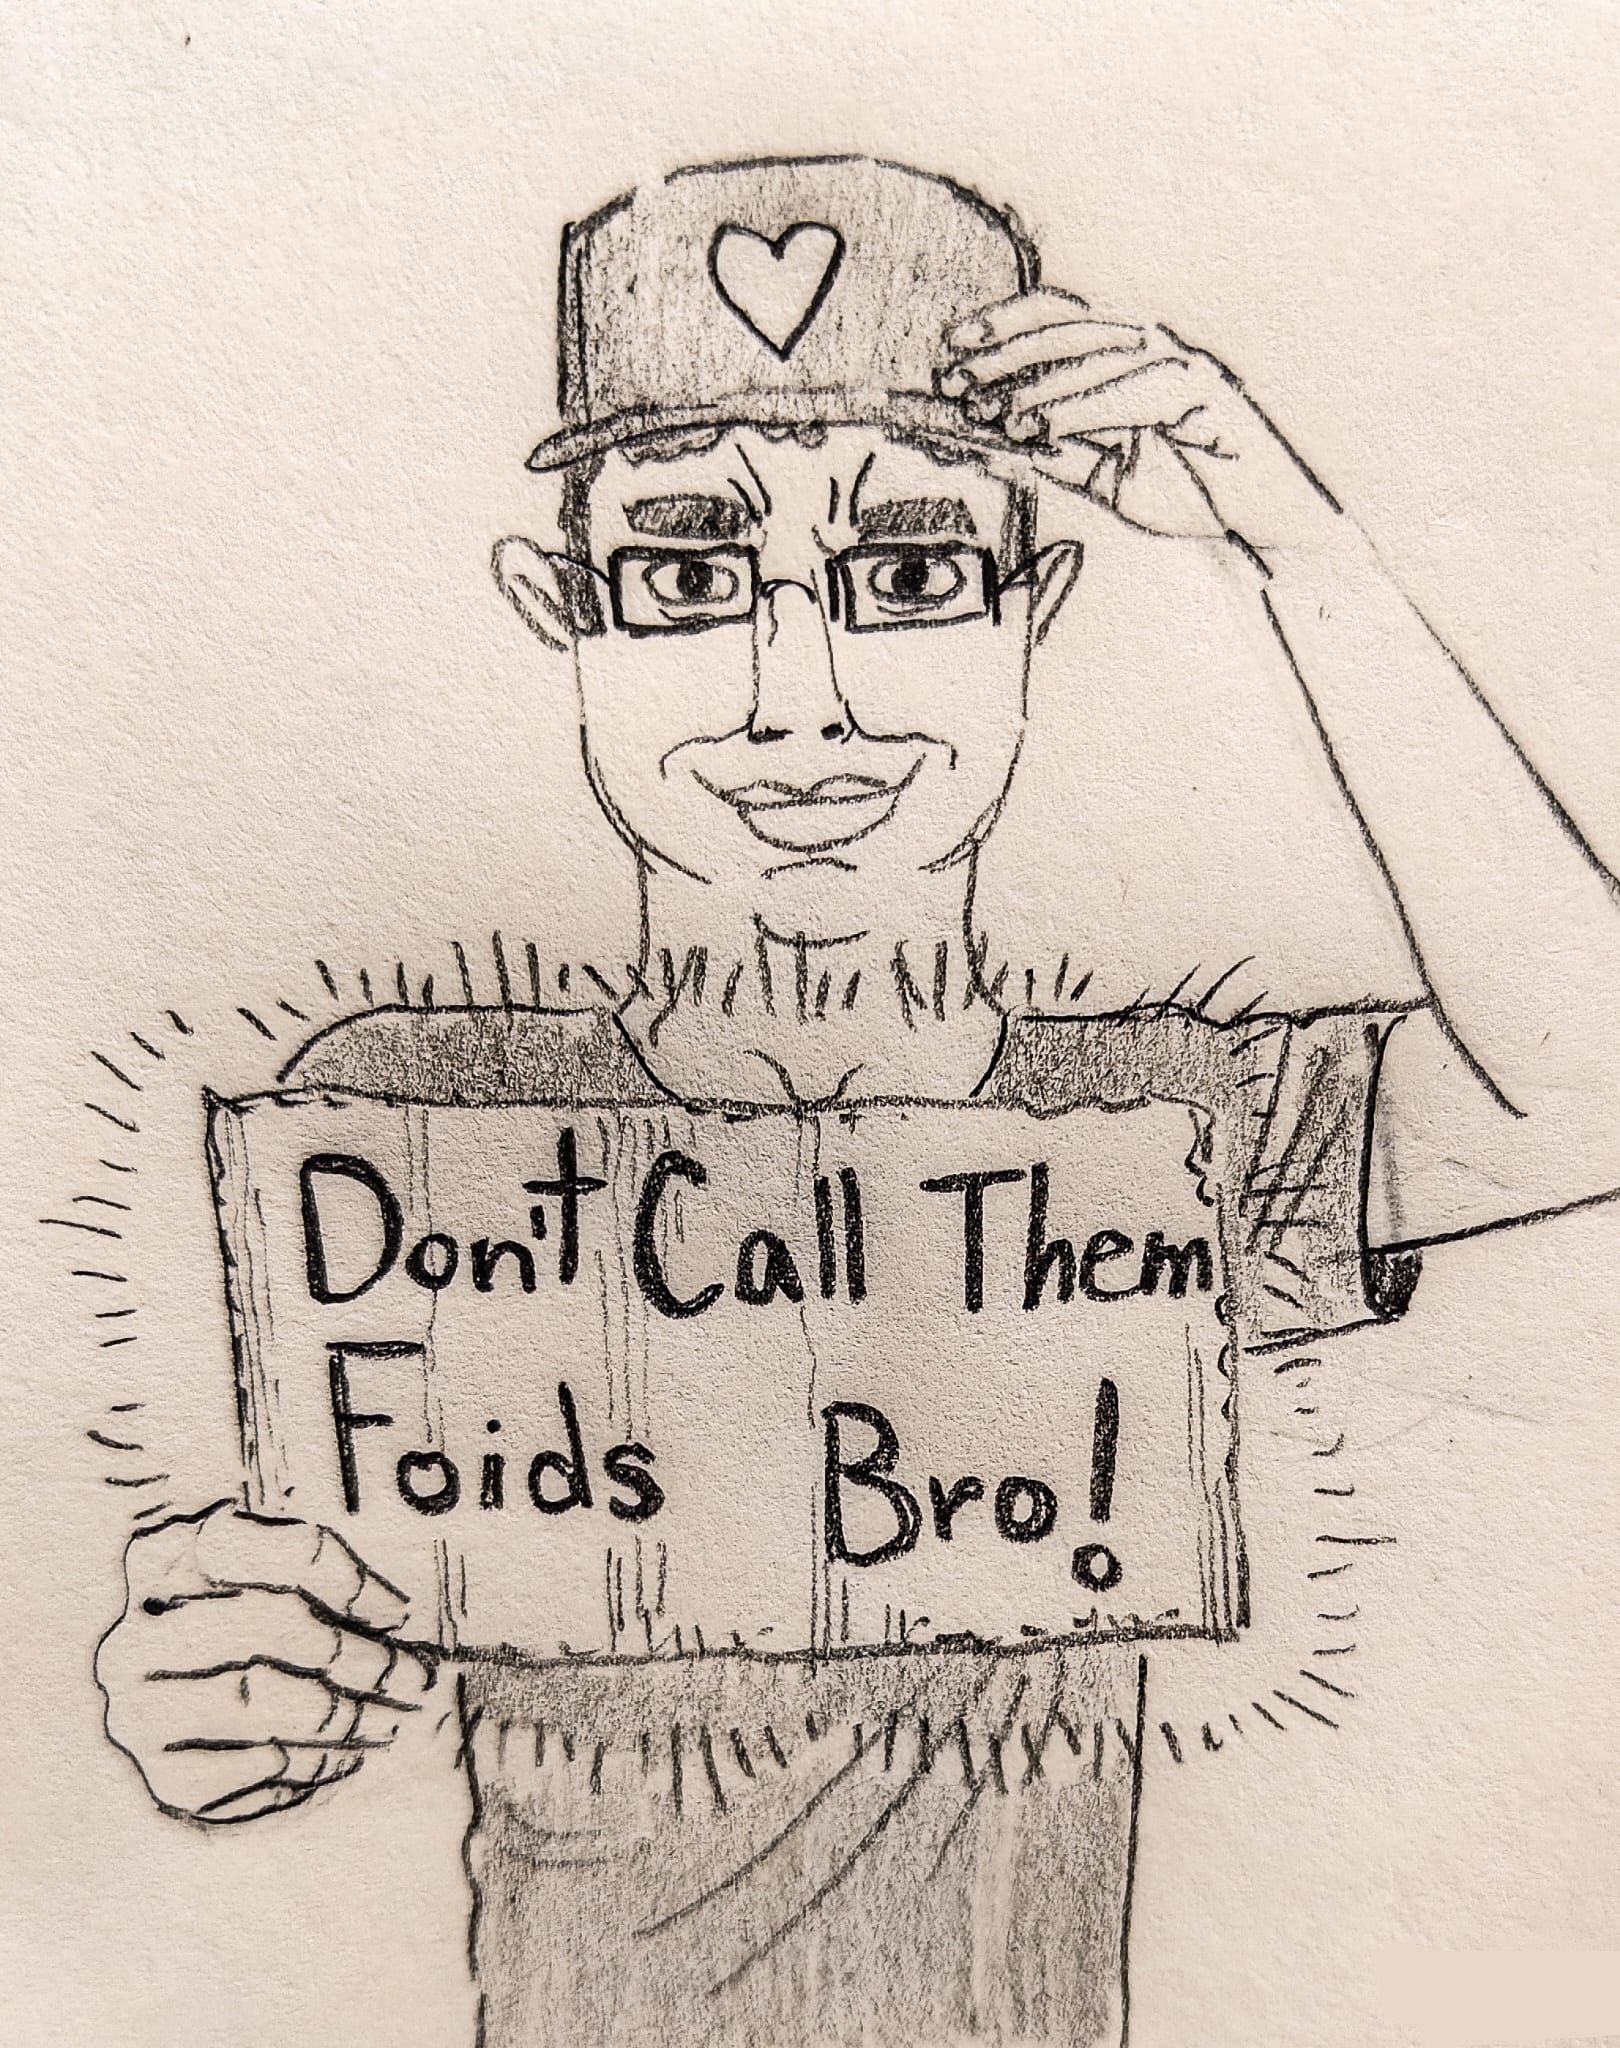 Don't Call Them
Foids Bro!